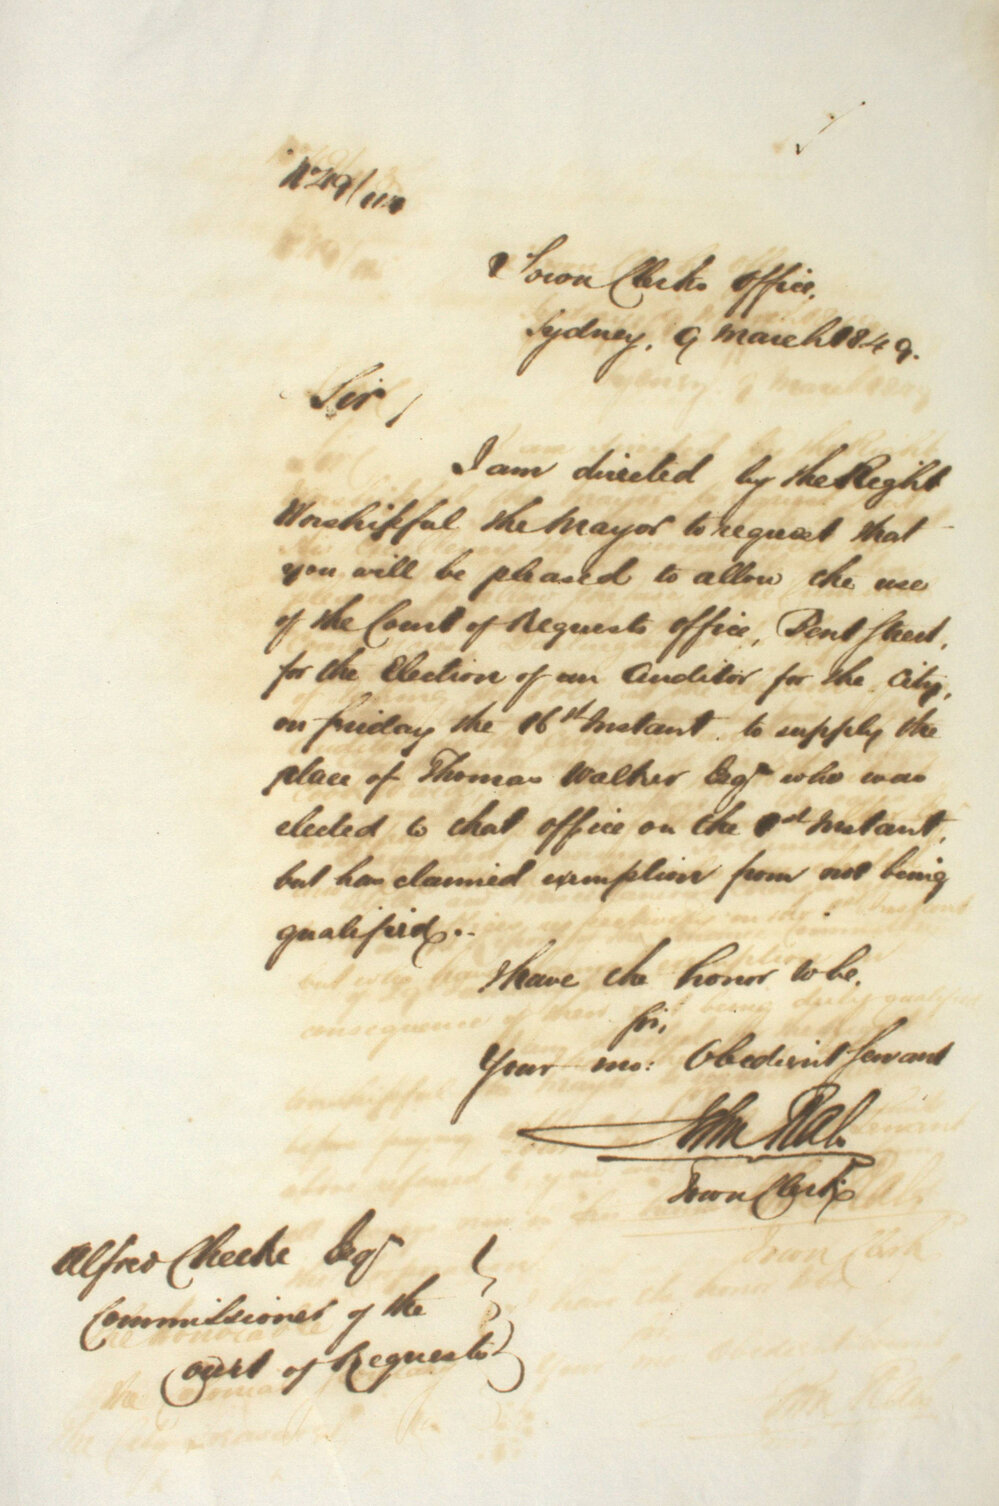 No 49/110
Town Clerks Office,
Sydney, 9 March 1849.
Sir,
I am directed by the Right
Worshipful the Mayor to request that
you will be pleased to allow the use
of the Court of Requests Office, Bent Street,
for the Election of an Auditor for the City,
on Friday the 16th Instant to supply the
place of Thomas Walker Esqr who was
elected to that office on the 1st Instant,
but has claimed exemption from not being
qualified.
I have the honor to be,
Sir,
Your mo: Obedient Servant
John Rae
Town Clerk
Alfred Cheeke Esqr
Commissioner of the
Court of Requests